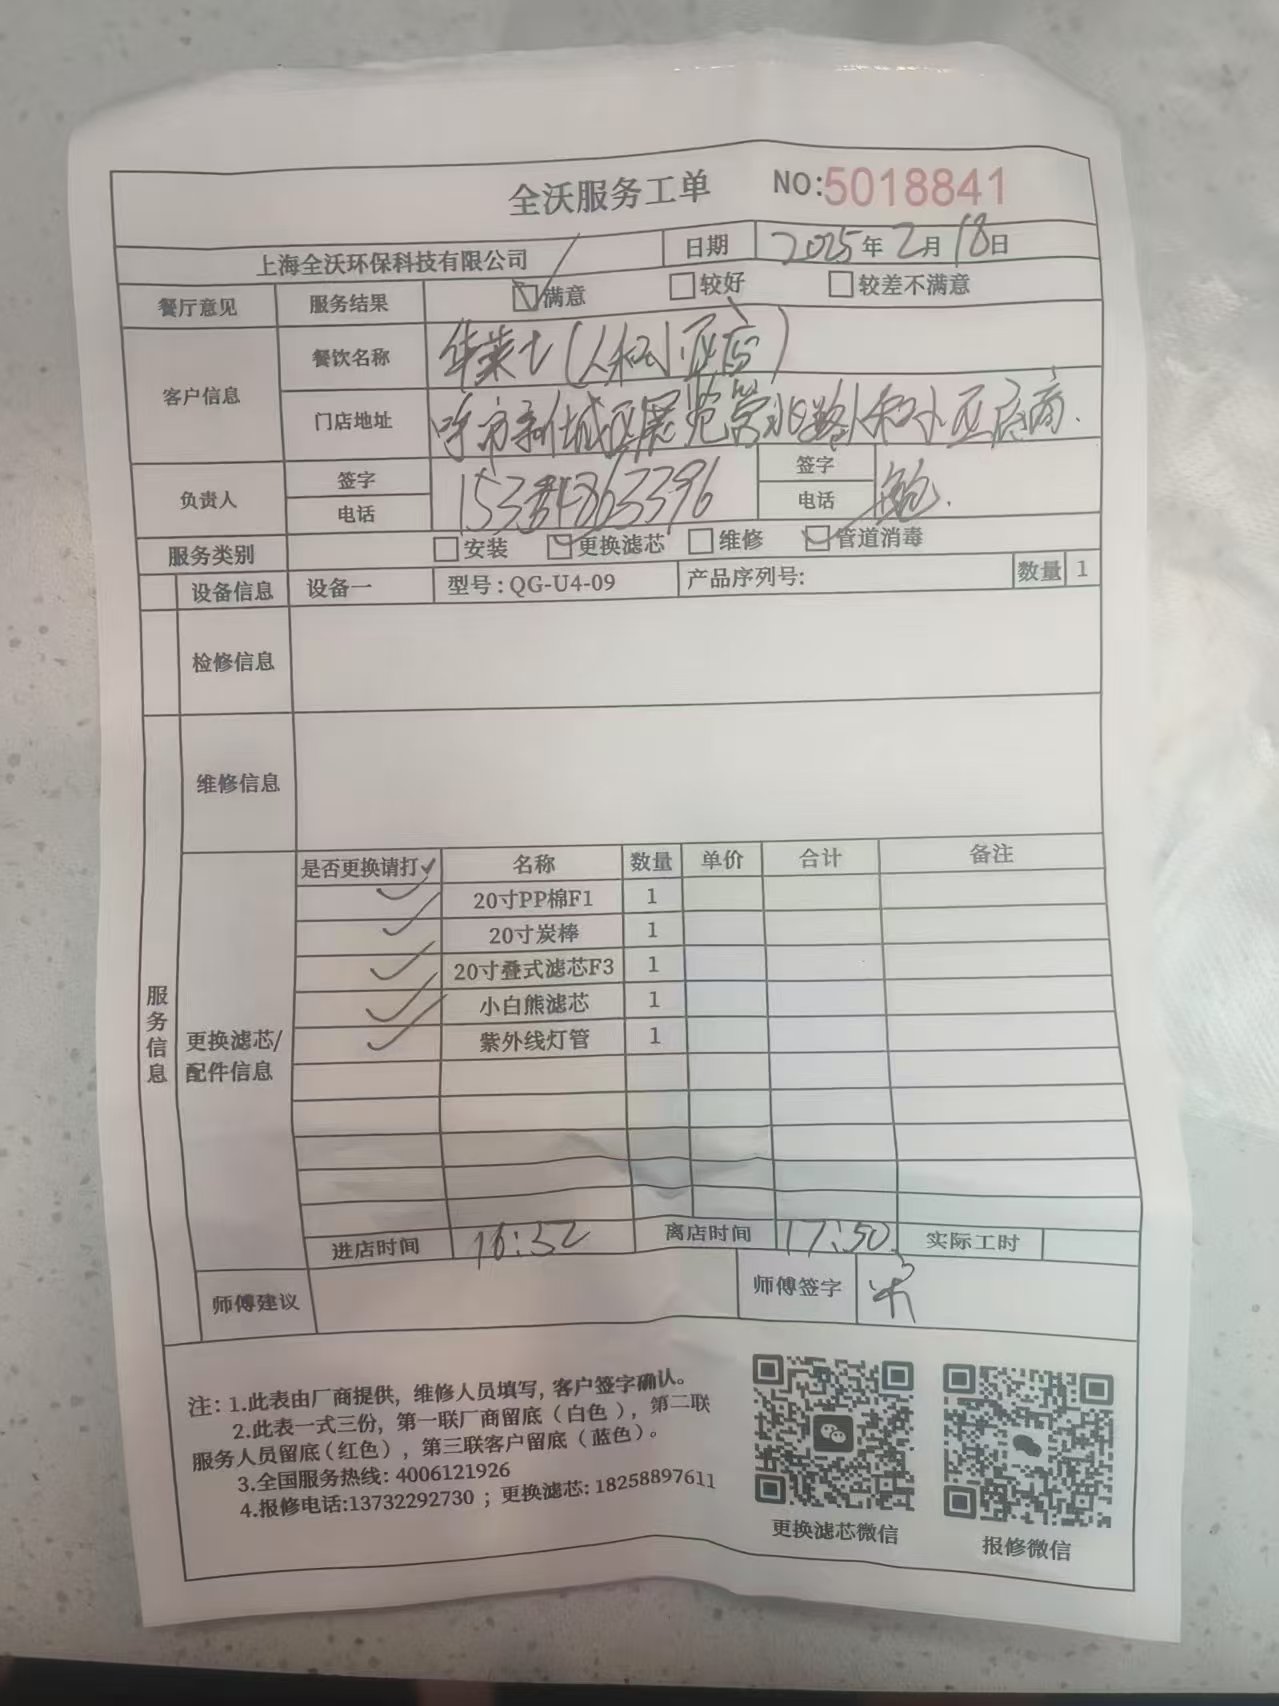 全沃服务工单 NO:5018841
上海全沃环保科技有限公司 日期 2025年2月18日
餐厅意见 服务结果 满意 较好 较差不满意
客户信息 餐饮名称 华莱士(人和小区店)
门店地址 呼市新城区展览馆北路人和小区底商.
负责人 签字 签字 鲍.
电话 电话
服务类别 安装 更换滤芯 维修 管道消毒
设备信息 设备一 型号:QG-U4-09 产品序列号: 数量 1
检修信息
维修信息
服务信息
更换滤芯/
配件信息
是否更换请打✓ 名称 数量 单价 合计 备注
✓ 20寸PP棉F1 1
✓ 20寸炭棒 1
✓ 20寸叠式滤芯F3 1
✓ 小白熊滤芯 1
✓ 紫外线灯管 1
进店时间 16:32 离店时间 17:50 实际工时
师傅建议 师傅签字
注: 1.此表由厂商提供, 维修人员填写, 客户签字确认。
2.此表一式三份, 第一联厂商留底(白色), 第二联
服务人员留底(红色), 第三联客户留底(蓝色)。
3.全国服务热线: 4006121926
4.报修电话:13732292730 ; 更换滤芯: 18258897611
更换滤芯微信 报修微信